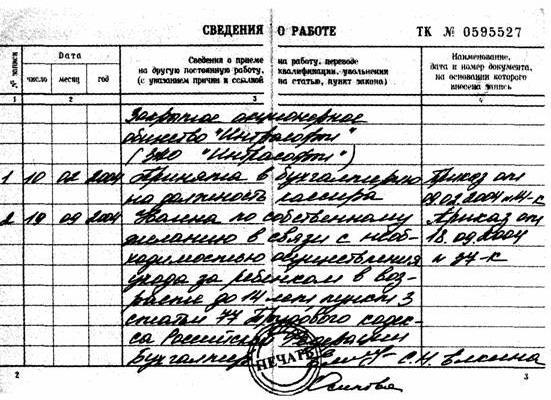 СВЕДЕНИЯ О РАБОТЕ ТК № 0595527
№ записи
Дата
число месяц год
Сведения о приеме на работу, переводе
на другую постоянную работу, квалификации, увольнении
(с указанием причин и ссылкой на статью, пункт закона)
Наименование,
дата и номер документа,
на основании которого
внесена запись
1 2 3 4
Закрытое акционерное
общество "Интрасофт"
(ЗАО "Интрасофт")
1 10 02 2004 Принята в бухгалтерию Приказ от
на должность кассира 09.02.2004 №4-к
2 19 09 2004 Уволена по собственному Приказ от
желанию в связи с необ- 18.09.2004
ходимостью осуществления № 37-к
ухода за ребенком в воз-
расте до 14 лет, пункт 3
статьи 77 Трудового кодек-
са Российской Федерации
Бухгалтер С.Н. Елкина
ПЕЧАТЬ
2 3